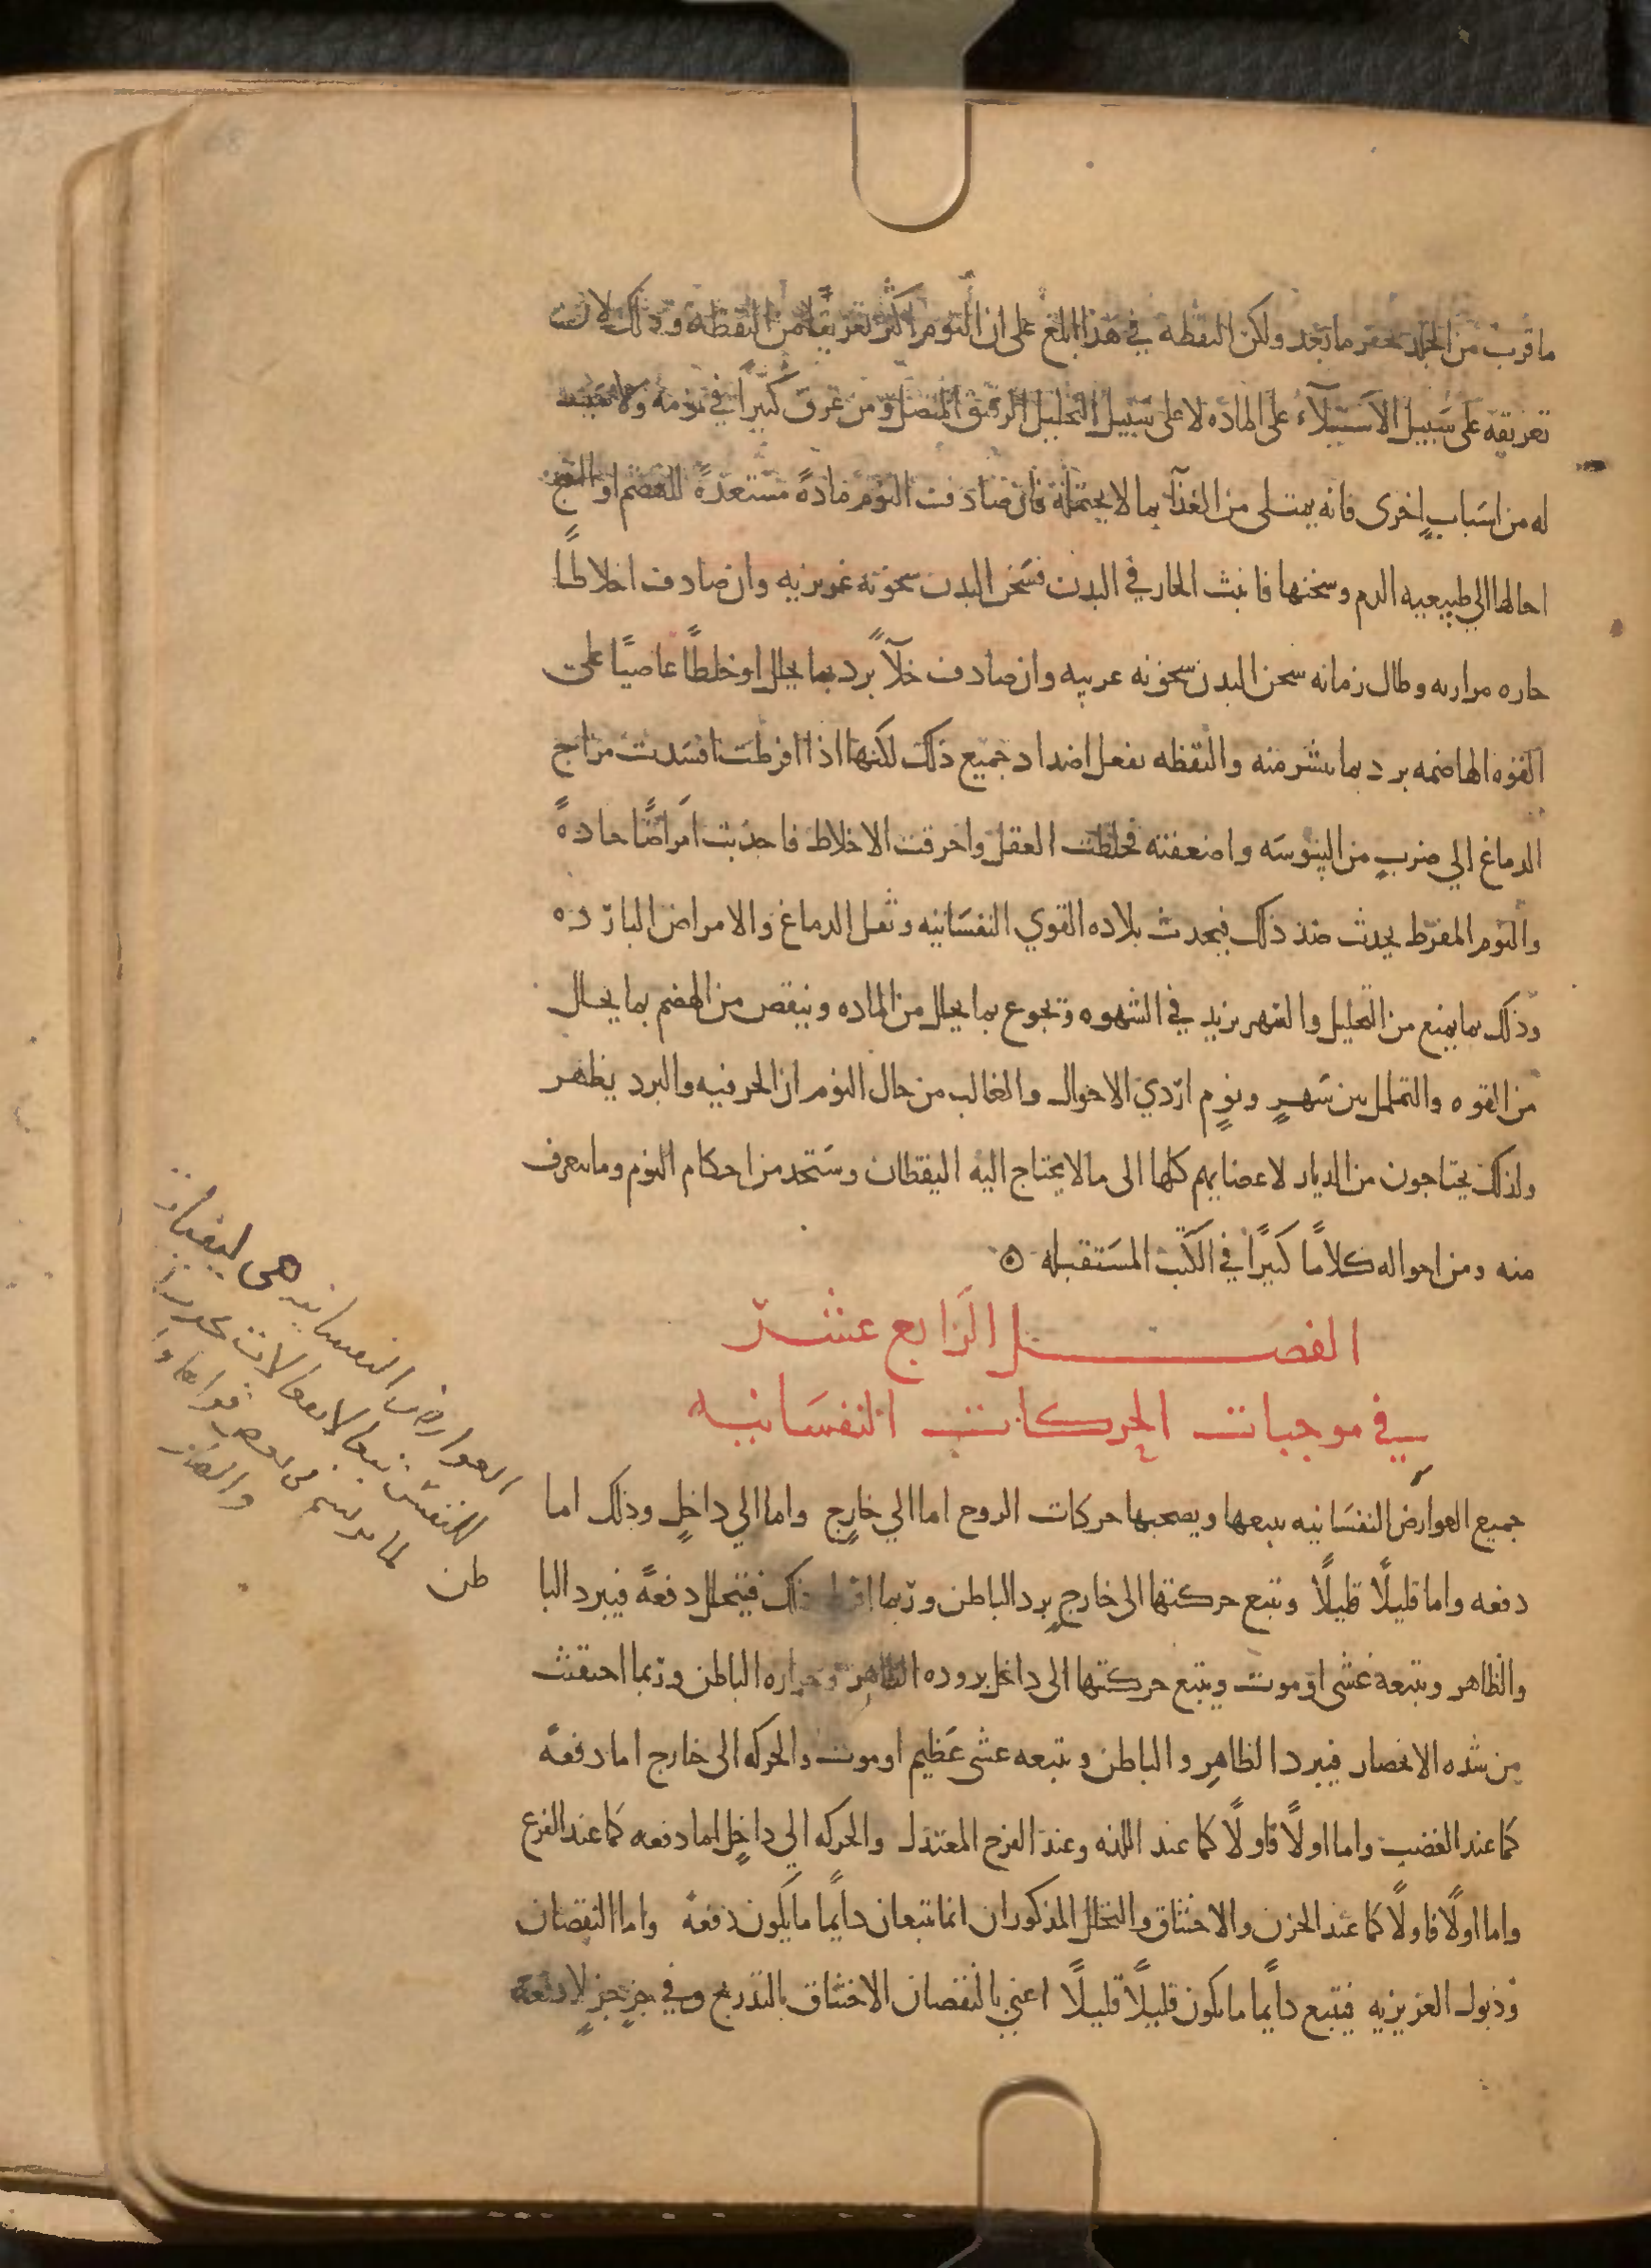 ما قرب من الجلد بحفز ما بعد ولكن اليقظه في هذا ابلغ على ان النوم اكثر تعريقًا من اليقظه وذلك لان
تعريقه على سبيل الاستيلآء على الماده لا على سبيل التحليل الرقيق المتصل ومن عرق كثيرًا في نومه ولا سبب
له من اسبابٍ اخرى فانه يمتلى من الغذآ بما لا يحتمله فان صادفت النوم مادةً مستعدةً للهضم او النضج
احالها الي طبيعيه الدم وسخنها فانبث الحار في البدن فسخن البدن سخونه غريزيه وان صادفت اخلاطًا
حاره مراريه وطال زمانه سخن البدن سخونه غريبه وان صادفت خلآً برد بما يحلل او خلطًا عاصيًا على
القوه الهاضمه برد بما ينشر منه واليقظه تفعل اضداد جميع ذلك لكنها اذا افرطت افسدت مزاج
الدماغ الي ضربٍ من اليبوسه واضعفته فخلطت العقل واحرقت الاخلاط فاحدثت امراضًا حادةً
والنوم المفرط يحدث ضد ذلك فيحدث بلاده القوي النفسانيه وثقل الدماغ والامراض البارده
وذلك بما يمنع من التحليل والسهر يزيد في الشهوه وتجوع بما يحلل من الماده وينقص من الهضم بما يحلل
من القوه والتململ بين سهرٍ ونومٍ اردي الاحوال والغالب من حال النوم ان الحر فيه والبرد يظهر
ولذلك يحتاجون من الدثار لاعضايهم كلها الى ما لا يحتاج اليه اليقظان وستجد من احكام النوم وما يتعرف
منه ومن احواله كلامًا كثيرًا في الكتب المستقبله ۞
الفصل الرابع عشر
في موجبات الحركات النفسانيه
جميع العوارض النفسانيه يتبعها ويصحبها حركات الروح اما الي خارجٍ واما الي داخلٍ وذلك اما
دفعه واما قليلًا قليلًا وتتبع حركتها الى خارجٍ برد الباطن وربما افرط ذلك فيتحلل دفعةً فيبرد البا
والظاهر ويتبعه غشى او موت ويتبع حركتها الى داخل بروده الظاهر وحراره الباطن وربما احتقنت
من شده الانحصار فيبرد الظاهر والباطن ويتبعه غشى عظيم او موت والحركه الى خارج اما دفعةً
كما عند الغضب واما اولًا فاولًا كما عند اللذه وعند الفرح المعتدل والحركه الي داخلٍ اما دفعه كما عند الفزع
واما اولًا فاولًا كما عند الحزن والاختناق والتحلل المذكوران انما يتبعان دايمًا ما يكون دفعةً واما النقصان
وذبول الغريزيه فيتبع دايمًا ما يكون قليلًا قليلًا اعني بالنقصان الاختناق بالتدريج وفي جزٍ جزٍ لا دفعة
العوارض النفسانيه هى
للنفس تبعا لانفعالات
طن